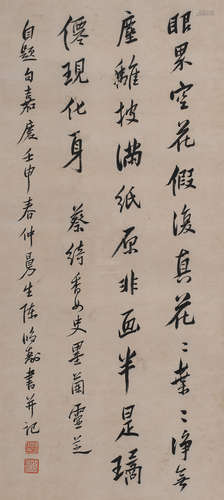 眼界空花假復真花〻葉〻淨無
塵離披满紙原非画半是瑤
僊現化身 蔡綺香女史墨蘭靈芝
自題句嘉度壬申春仲曼生陳鴻壽書并记